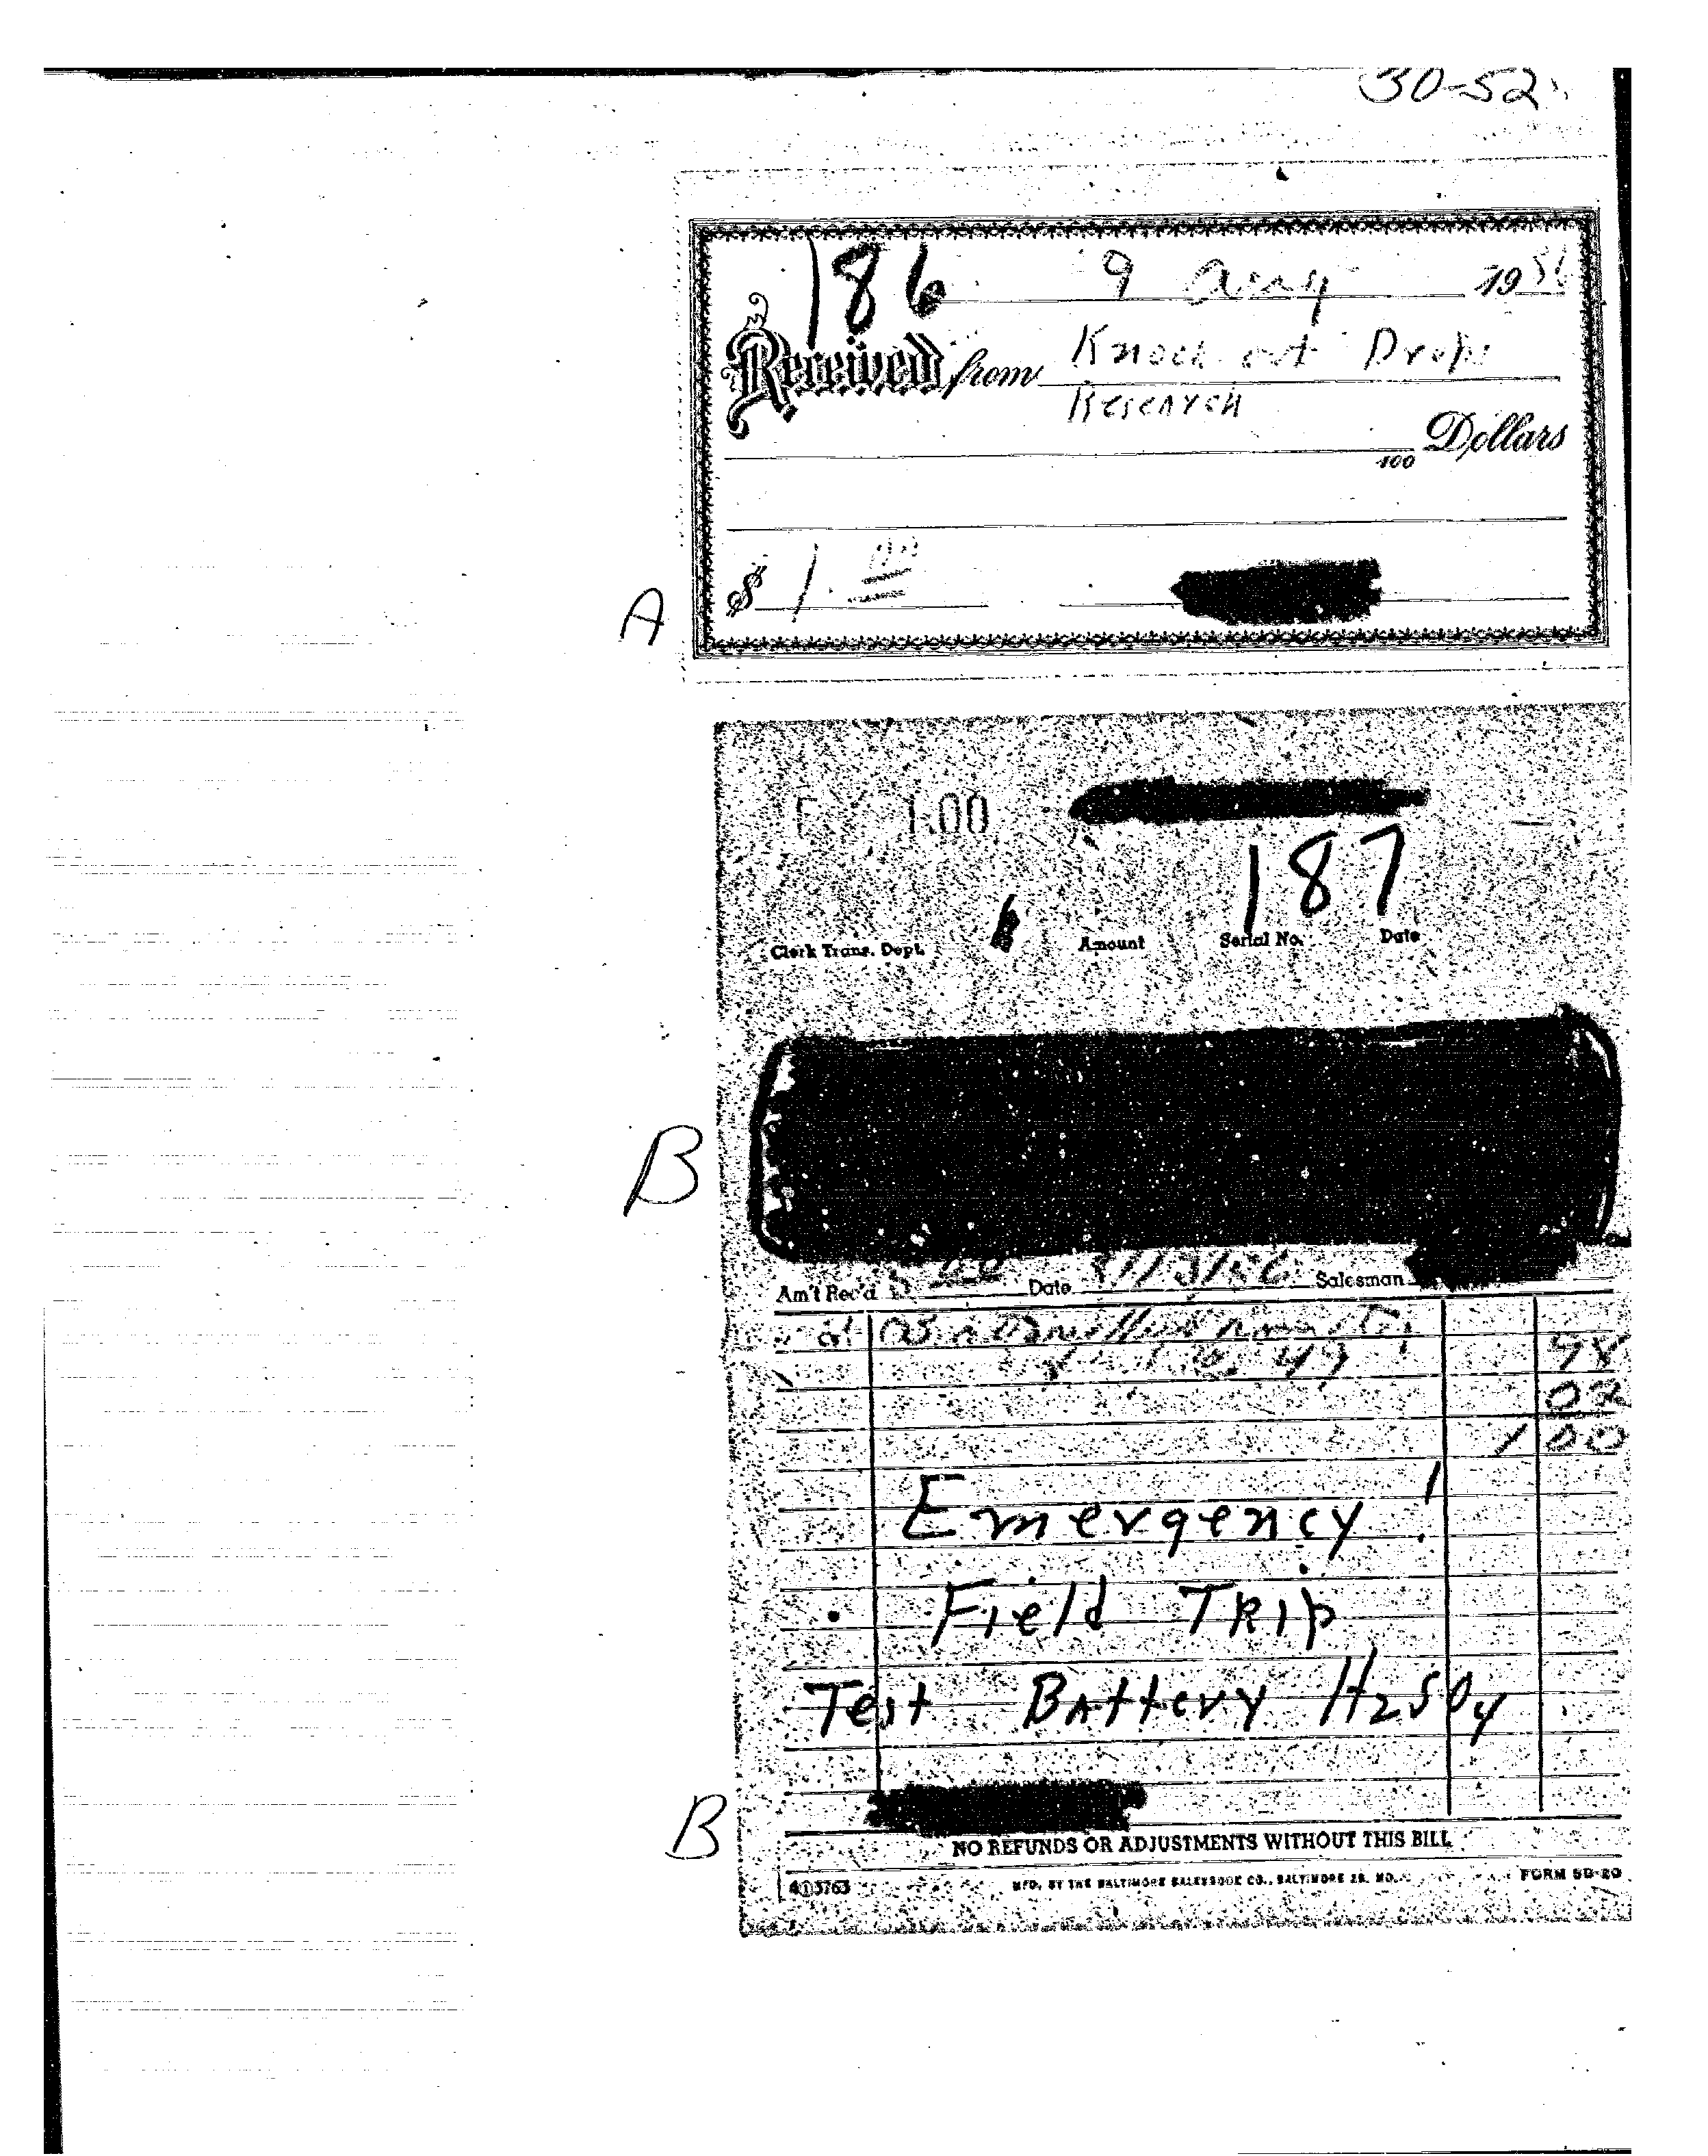 30-52
186 9 Aug 1956
Received from Knock out Drops
Research
Dollars
100
$ 1.00
A
F 1.00
187
Clerk Trans. Dept. Amount Serial No. Date
B
Am't Rec'd Date Salesman
@ 49 98
02
1 00
Emergency!
Field Trip
Test Battery H2SO4
B
NO REFUNDS OR ADJUSTMENTS WITHOUT THIS BILL
MFD. BY THE BALTIMORE SALESBOOK CO., BALTIMORE MD. FORM